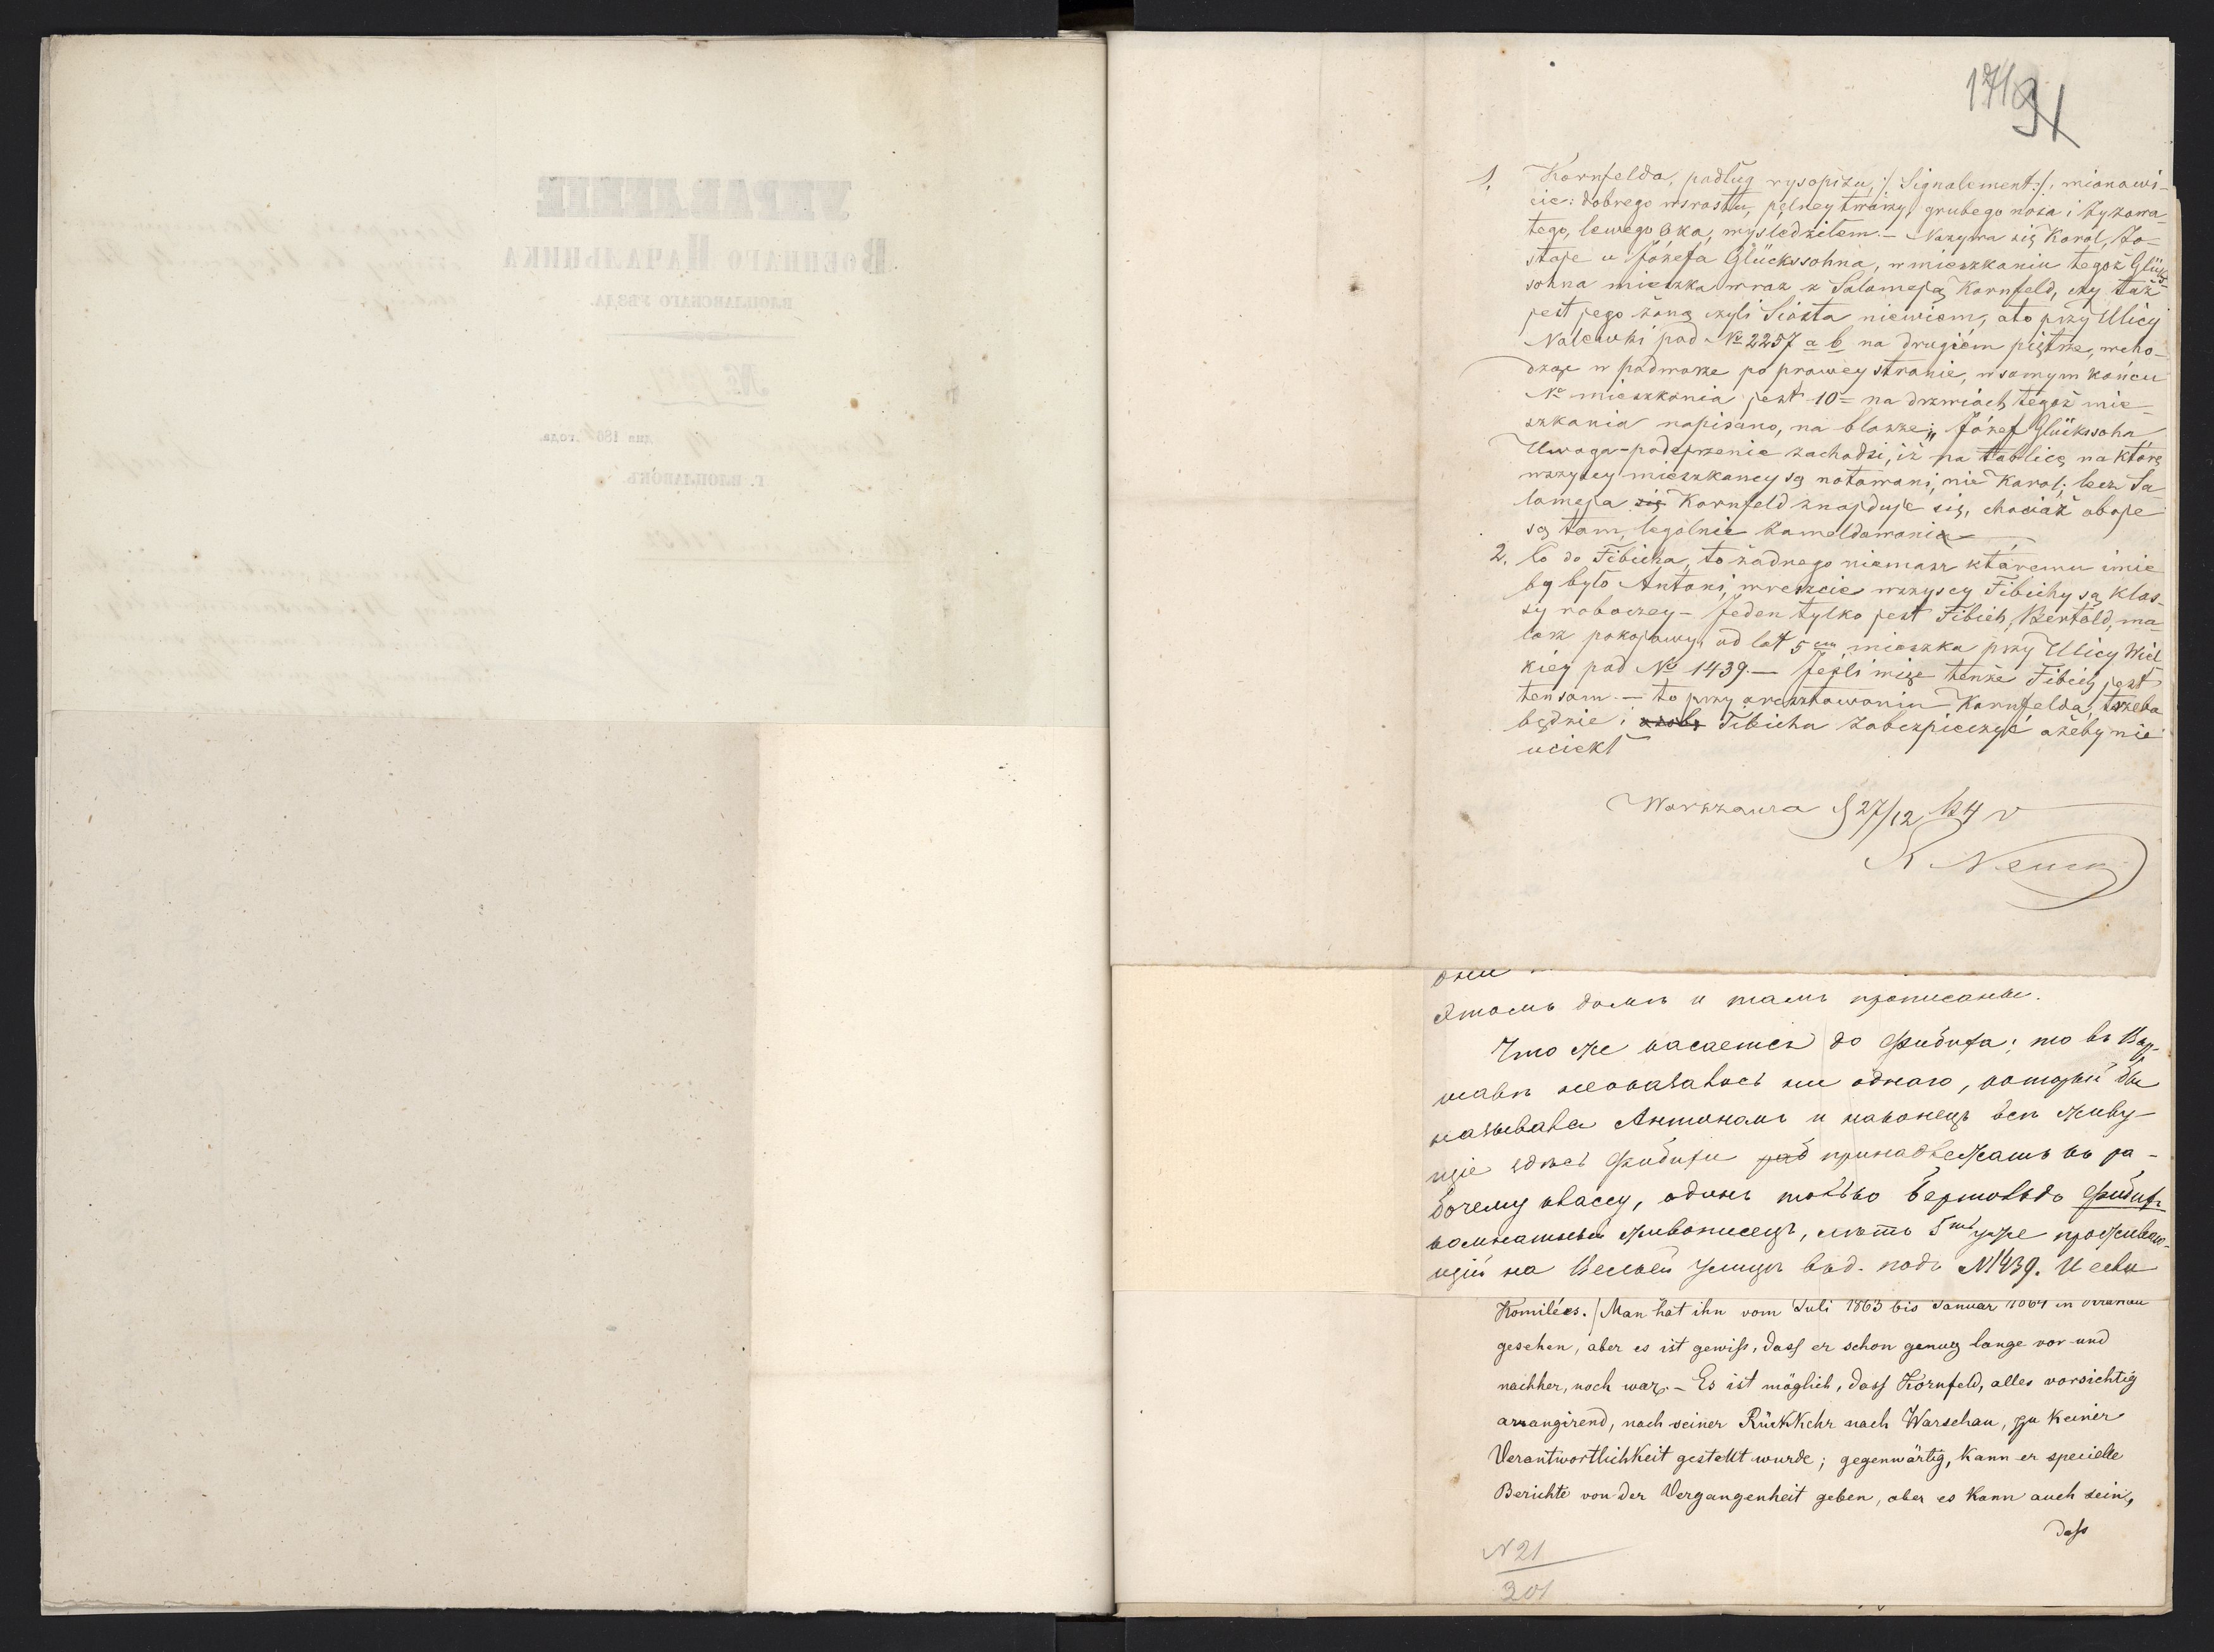 УПРАВЛЕНІЕ
ВОЕННАГО НАЧАЛЬНИКА
ВЛОЦЛАВСКАГО УѢЗДА.
№
дня 186 года.
Г. ВЛОЦЛАВОКЪ.
171
91
1. Kornfelda, podług rysopisu, /: Signalement :/, mianowi-
cie: dobrego wzrostu, pełney twarzy, grubego nosa i zyzowa-
tego, lewego oka, wyśledziłem. – Nazywa się Karol, zo-
staje u Józefa Glückssohna, w mieszkaniu tegoż Glücks-
sohna mieszka wraz z Salomeją Kornfeld, czy taż
jest jego żoną czyli Siostrą niewiem, a to przy Ulicy
Nalewki pod № 2257 a b na drugiém piętrze, wcho-
dząc w podworze po prawey stronie, w samym końcu
№ mieszkania jest 10 = na drzwiach tegoż mie-
szkania napisano, na blasze; „Józef Glückssohn
Uwaga – podejrzenie zachodzi, iż na tablicę na którą
wszyscy mieszkancy są notowani, nie Karol, lecz Sa-
lomeja się Kornfeld znajduje się, chociaż oboje
są tam, legalnie zameldowani
2. Co do Fibicha, to żadnego niemasz któremu imie
by było Antoni, wreszcie wszyscy Fibichy są klas-
sy roboczey – Jeden tylko jest Fibich, Bertold, ma-
larz pokojowy, od lat 5ciu mieszka przy Ulicy Wiel-
kiey pod № 1439. – Jeżli więc tenże Fibich jest
ten sam – to przy aresztowaniu Kornfelda, trzeba
będzie i Fibicha zabezpieczyć ażeby nie
uciekł
Warszawa d 27/12 64 r
они
этомъ домѣ и тамъ прописаны.
Что же касается до Фибиха; то въ Вар-
шавѣ неоказалось ни одного, который бы
назывался Антономъ и наконецъ всѣ живу-
щіе здѣсь Фибихи принадлежатъ къ ра-
бочему классу, одинъ только Бертольдъ Фибихъ
комнатный живописецъ, лѣтъ 5ть уже проживаю-
щій на Велькей Улицѣ въ д. подъ №1439. И если
Komitées. / Man hat ihn vom Juli 1863 bis Januar 1864 in Krakau
gesehen, aber es ist gewiß, dass er schon genug lange vor und
nachher, noch war. – Es ist möglich, dass Kornfeld, alles vorsichtig
arrangirend, nach seiner Rückkehr nach Warschau, zu keiner
Verantwortlichkeit gestellt wurde; gegenwärtig, kann er specielle
Berichte von der Vergangenheit geben, aber es kann auch sein,
daß
N 21
301